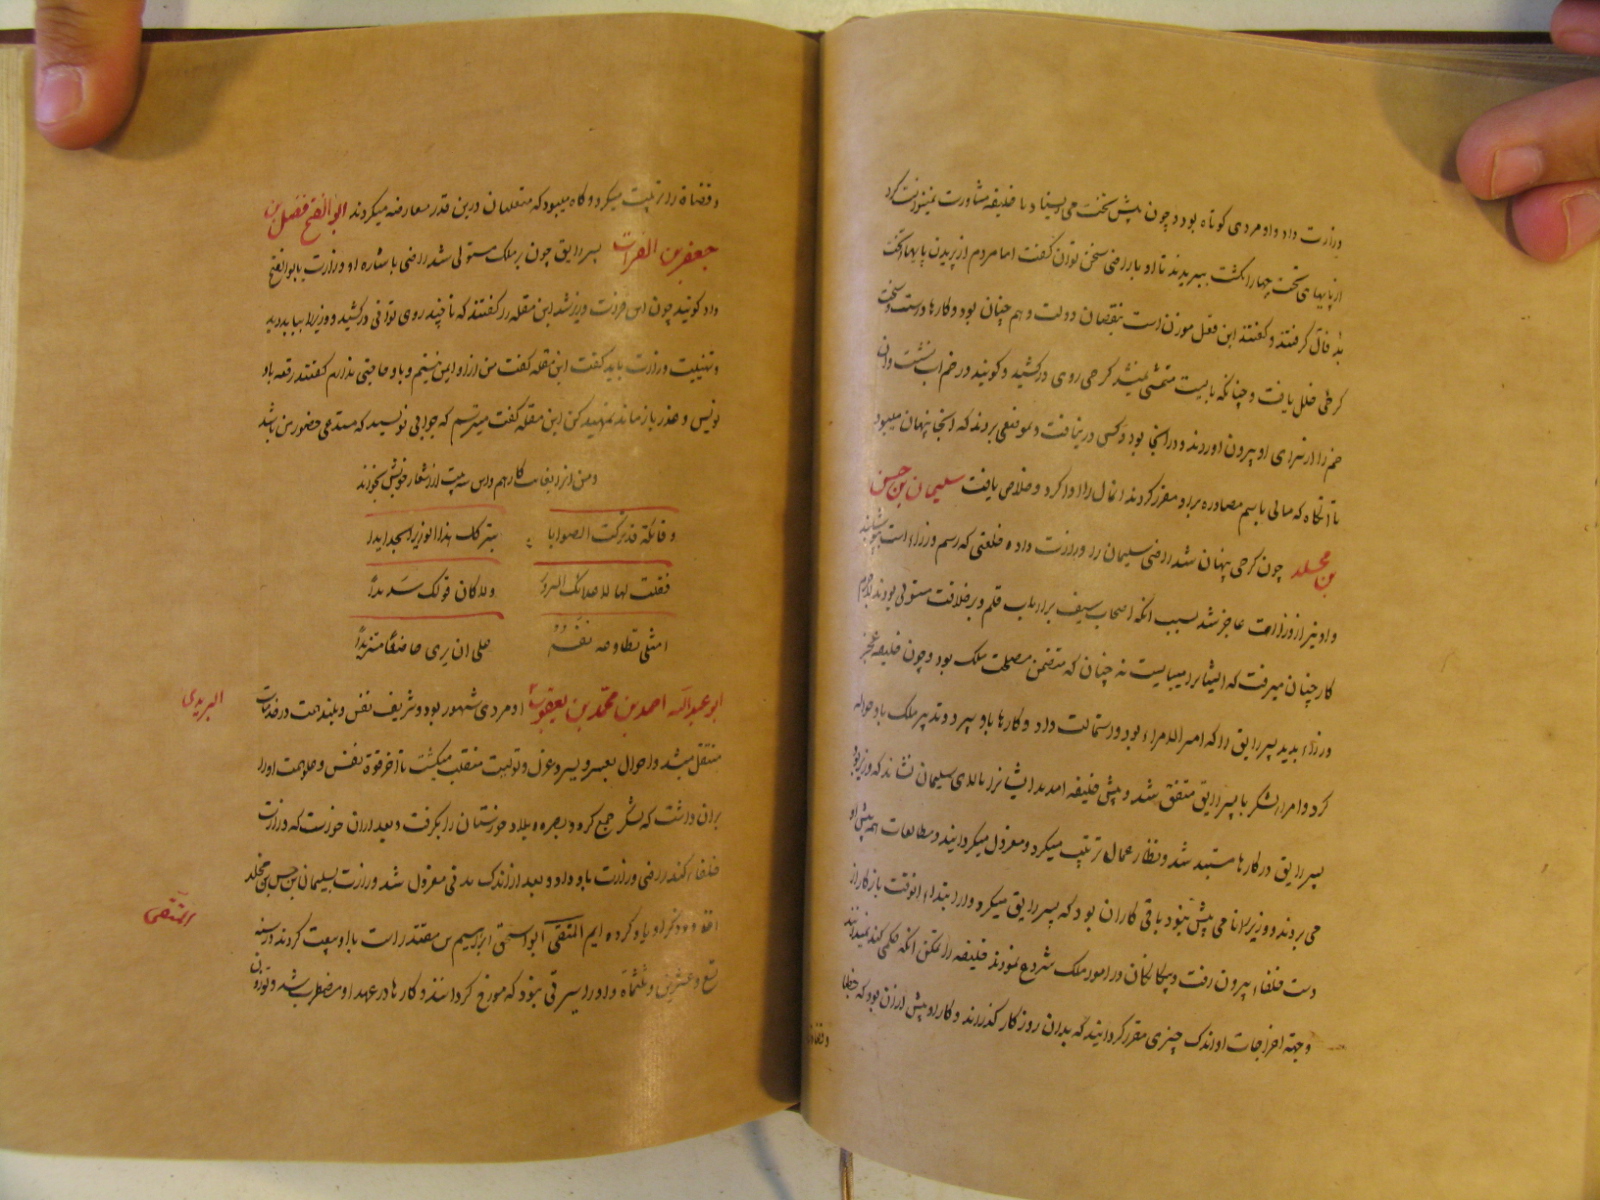 وزارت داد و او مردی کوتاه بود و چون پیش تخت می ایستاد با خلیفه مشاورت نمیتوانست کرد
از پایهای تخت چهار انگشت ببریدند تا او با راضی سخن توان گفت اما مردم از بریدن پایهای تخت
بد فال گرفتند و گفتند این فعل موذن است بنقصان دولت و هم چنان بود و کارها و سخن
کرخی خلل یافت و چنانکه بایست متمشی نمیشد کرخی روی درکشید و کویند در خم اب نشست و ان
خم را از سرای او بیرون اوردند و در انجا بود و کس در نیافت و بموضعی بردند که انجا پنهان میبود
تا انکاه که مالی باسم مصادره برو مقرر کردند ان مال را ادا کرد و خلاص یافت سلیمان بن حسن
بن مخلد چون کرخی پنهان شد راضی سلیمان را وزارت داد و خلعتی که رسم وزراء است بپوشید
و او نیز از وزارت عاجز شد بسبب انکه اصحاب سیف بر ارباب قلم و بر خلافت مستولی بودند لاجرم
کار چنان میرفت که ایشانرا میبایست نه چنان که متضمن مصلحت ملک بود و چون خلیفه عجز
وزراء بدید پسر رایق را که امیر الامراء بود و استمالت داد و کارها باو سپرد و تدبیر ملک باو حواله
کرد و امراء لشکر با پسر رایق متفق شد و پیش خلیفه امدند ایشانرا بالای سلیمان نشاند که وزیر بود
پسر رایق در کارها مستبد شد و نظار عمال ترتیب میکرد و معزول میکردانید و مطالعات همه پیش او
می بردند و وزیر را نامی بیش نبود باقی کار ان بود که پسر رایق میکرد و از ابتداء انوقت باز کار از
دست خلفاء بیرون رفت و بیکانکان در امور ملک شروع نمودند خلیفه را تمکن انکه حکمی کند نمیدادند
و جهة اخراجات او اندک چیزی مقرر کردانیدند که بدان روزکار کذراند و کار او بیش از ان نبود که خطبا
و قضاة
و قضاة را ترتیب میکرد و کاه میبود که متغلبان درین قدر معارضه میکردند ابو الفتح فضل بن
جعفر بن الفرات پسر رایق چون بر ملک مستولی شد راضی باشاره او وزارت بابو الفتح
داد کویند چون ابن فرات وزیر شد ابن مقله را کفتند که تا چند روی تواقی درکشید و وزیر را بباید دید
و تهنیت وزارت باید گفت ابن مقله گفت من از او ایمن نیستم و باو حاجتی ندارم کفتند رقعه باو
نویس و عذر باز ماند تمهید کن ابن مقله گفت میترسم که جوابی نویسد که مستدعی حضور من باشد
و من از ان کارهم و این سه بیت از اشعار خویش بخواند
و قائلة قد ترکت الصوابا بترکک هذا الوزیر الجدیدا
فقلت لها لا عداک السرور ولا کان قولک سدیدا
امثلی تطاوعه نفسه علی ان یری خاضعا مستزیدا
ابو عبدالله احمد بن محمد بن یعقوب او مردی مشهور بود و شریف نفس و بلند همت در خدمات
البریدی
منتقل میشد و احوال بعسر و یسر و عزل و تولیت منقلب میکشت تا آخر قوة نفس و علو همت او را
بران داشت که لشکر جمع کرد و بصره و بلاد خوزستان را بگرفت و بعد از ان خواست که وزارت
خلفاء کند راضی وزارت باو داد و بعد از اندک مدتی معزول شد وزارت بسلیمان بن حسن بن مخلد
افتاد و ذکر او یاد کرده ایم المتقی ابو اسحق ابراهیم بن مقتدر است با او بیعت کردند در سنه
المتقی
تسع و عشرین و ثلثمائة و او را سیرتی نبود که مورخ کردانند و کارها در عهد او مضطرب شد و توزون